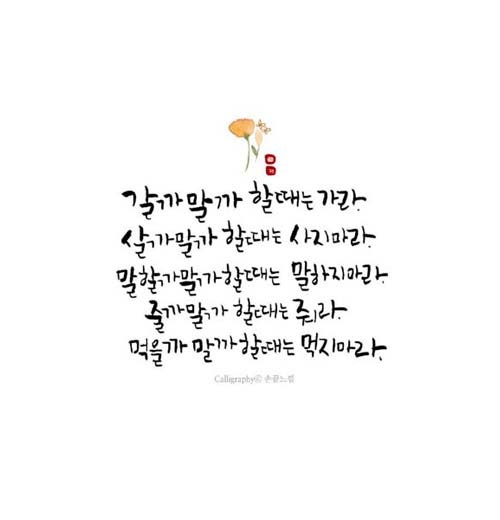 갈까말까 할때는 가라.
살까말까 할때는 사지마라.
말할까말까할때는 말하지마라.
줄까말까 할때는 줘라.
먹을까 말까할때는 먹지마라.
Calligraphyⓒ 손끝느낌